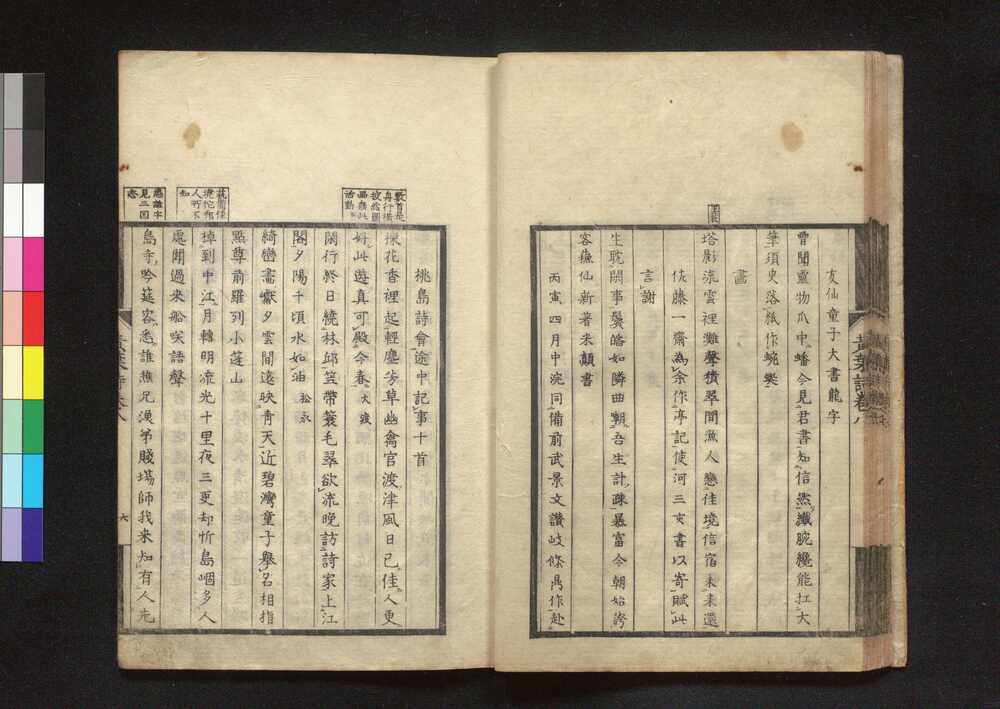 友仙童子大書龍字
曾聞靈物爪中蟠今見君書知信然纖腕纔能扛大
筆須臾落紙作蜿蜒
畫
塔影流雲裡灘聲積翠間漁人戀佳境信宿未来還
佐藤一齋為余作亭記使河三亥書以寄賦此
言謝
生耽閑事鬢皤如隣曲朝吾生計疎暴富今朝始誇
客蕉仙新著米顛書
丙寅四月中浣同備前武景文讚岐條禹作赴
黄葉詩卷八
數首是
舟行
桃島詩會途中記事十首
探花香裡起輕塵芳草幽禽官渡津風日已佳人更
好此遊真可殿今春
閑行終日繞林邱笠帶蓑毛翠欲流晚訪詩家上江
閣夕陽千頃水如油
綺巒
巘夕雲間遠映青天近碧灣童子舉名相指
點尊前羅列小蓬山
棹到中江月轉明流光十里夜三更却忻島嶼多人
處聞過来船咲語聲
島寺吟筵客悉誰樵兄漁弟賤場師我来知有人先
六